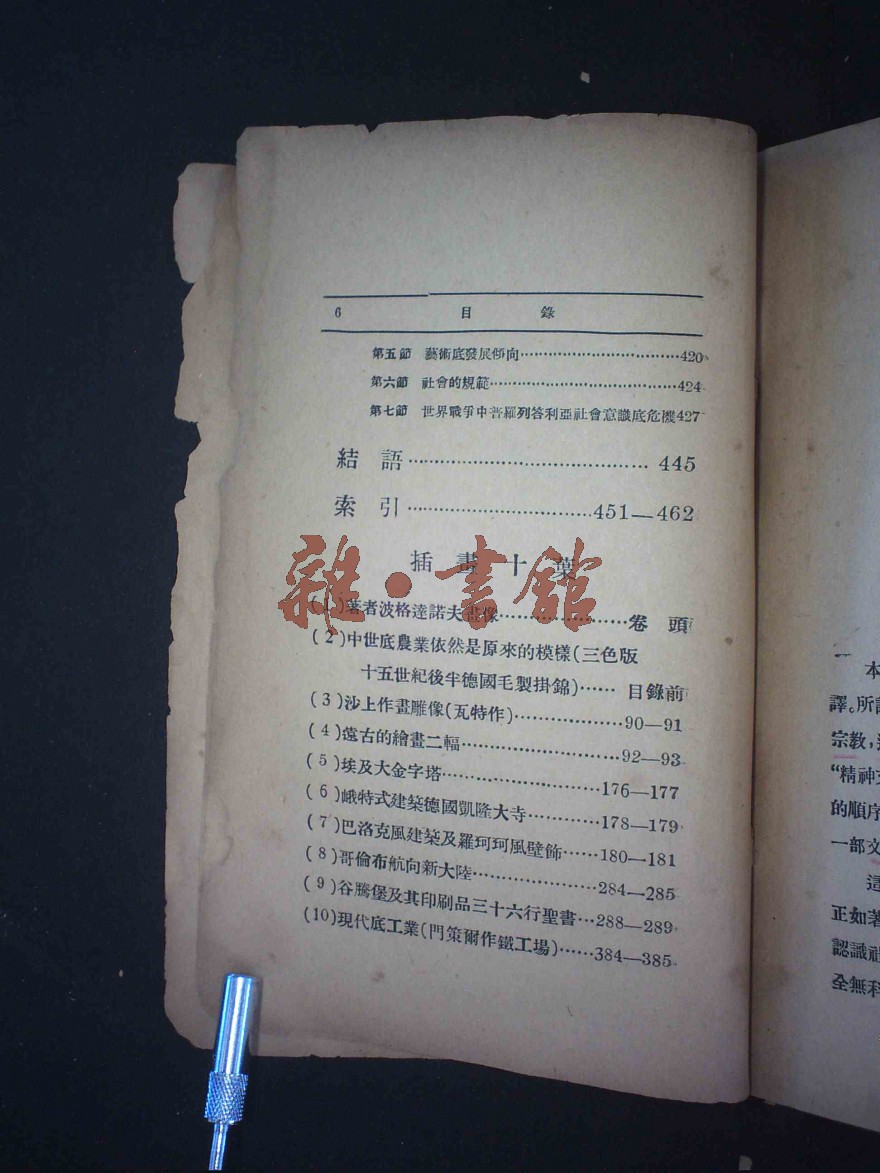 6 目錄
第五節 藝術底發展傾向……………………………420
第六節 社會的規範…………………………………424
第七節 世界戰爭中普羅列答利亞社會意識底危機427
結語…………………………………… 445
索引…………………………451—462
插畫十葉
雜·書館
(1)著者波格達諾夫畫像…………………卷頭
(2)中世底農業依然是原來的模樣(三色版
十五世紀後半德國毛製掛錦)…… 目錄前
(3)沙上作畫雕像(瓦特作)………………90—91
(4)遠古的繪畫二幅……………………92—93
(5)埃及大金字塔……………………176—177
(6)峨特式建築德國凱隆大寺…………178—179
(7)巴洛克風建築及羅珂珂風壁飾……180—181
(8)哥倫布航向新大陸…………………284—285
(9)谷騰堡及其印刷品三十六行聖書…288—289
(10)現代底工業(門策爾作鐵工場)……384—385
本
譯。所
宗教,
“精神
的順序
一部文
這
正如著
認識
全無科